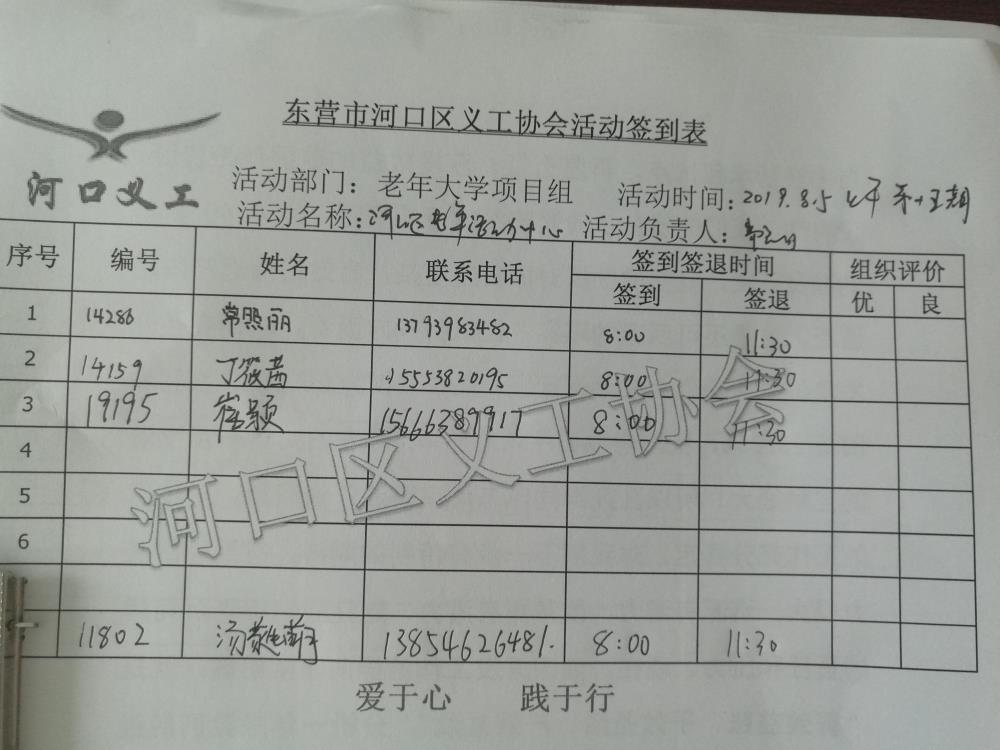 东营市河口区义工协会活动签到表
河口义工
活动部门：老年大学项目组 活动时间：2019.8.5 上午 第十五期
活动名称：河口区老年活动中心 活动负责人：
序号 编号 姓名 联系电话 签到签退时间 组织评价
签到 签退 优 良
1 14286 常照丽 13793983482 8:00 11:30
2 14159 丁筱茜 15553820195 8:00 11:30
3 19195 崔颖 15666389917 8:00 11:30
4
5
6
11802 汤 13854626481. 8:00 11:30
爱于心 践于行
河口区义工协会